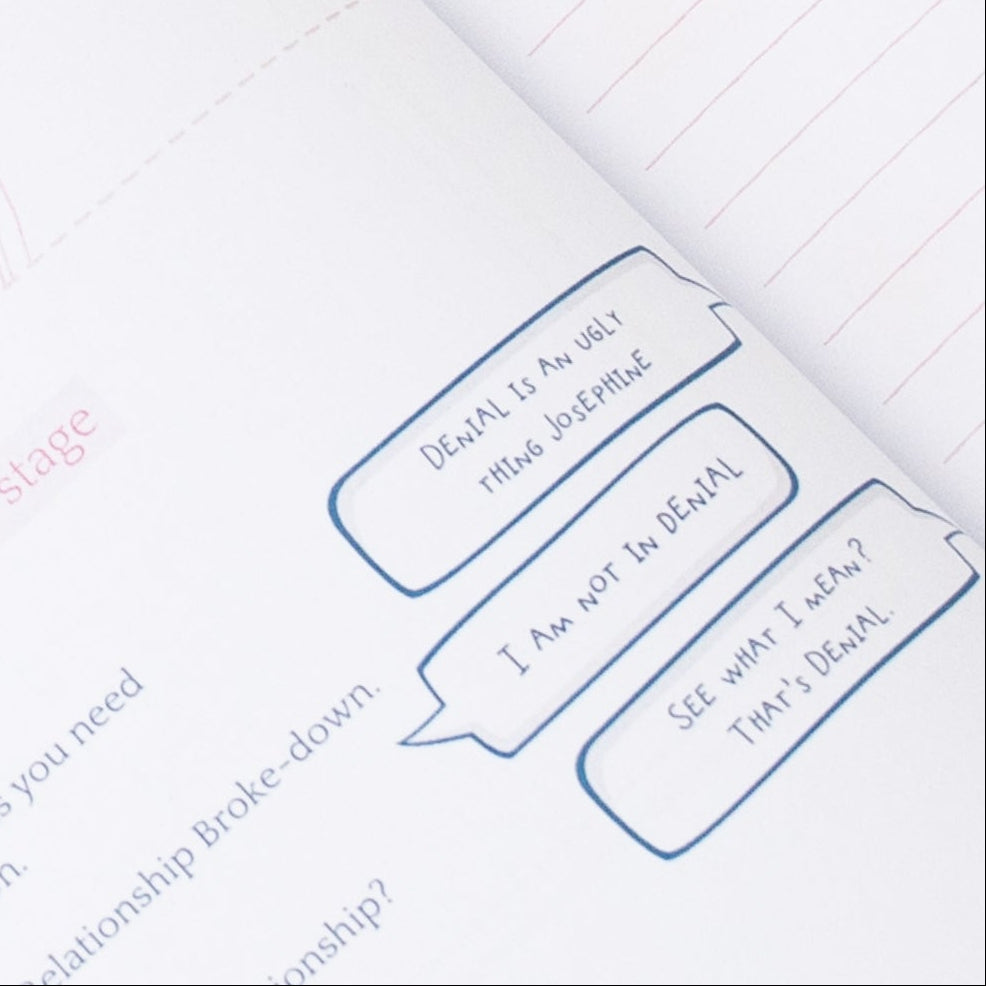 stage
DENIAL IS AN UGLY
THING JOSEPHINE
I AM NOT IN DENIAL
SEE WHAT I MEAN?
THAT'S DENIAL.
you need
Relationship Broke-down.